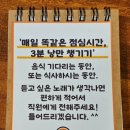 '매일 똑같은 점심시간,
3분 낭만 챙기기'
음식 기다리는 동안,
또는 식사하시는 동안,
듣고 싶은 노래가 생각나면
편하게 적어서
직원에게 전해주세요!
틀어드리겠습니다. ^^